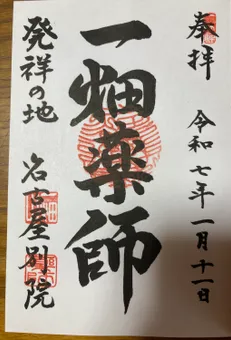 奉拝
令和七年一月十一日
一畑薬師
発祥の地
名古屋別院